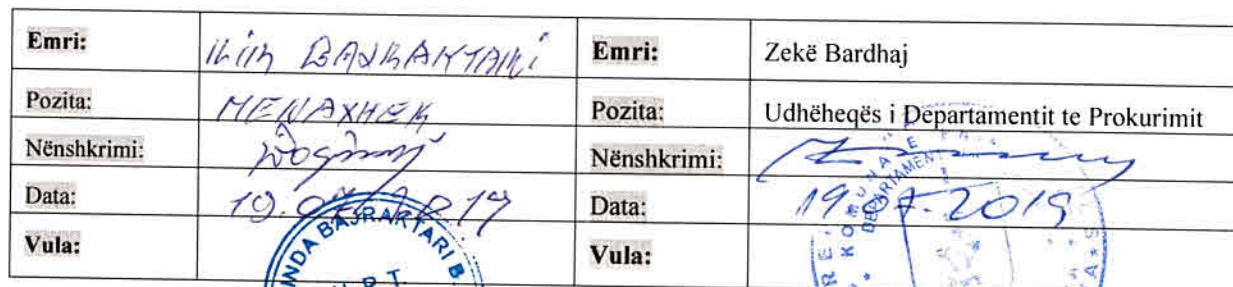 Emri: Ilir BAJRAKTARI Emri: Zekë Bardhaj
Pozita: MENAXHER Pozita: Udhëheqës i Departamentit te Prokurimit
Nënshkrimi: Nënshkrimi:
Data: Data: 19.07.2019
Vula: Vula:
BAJRAKTARI B.
KOMUNA E